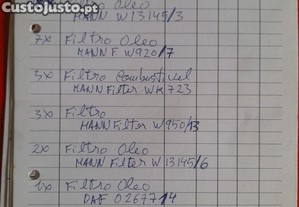 Custojusto.pt
MANN W13145/3
7x Filtro Oleo
MANN F W920/7
3x Filtro Combustivel
MANN Filter WK 723
3x Filtro
MANN Filter W950/13
2x Filtro Oleo
MANN Filter W13145/6
1x Filtro Oleo
DAF 0267714